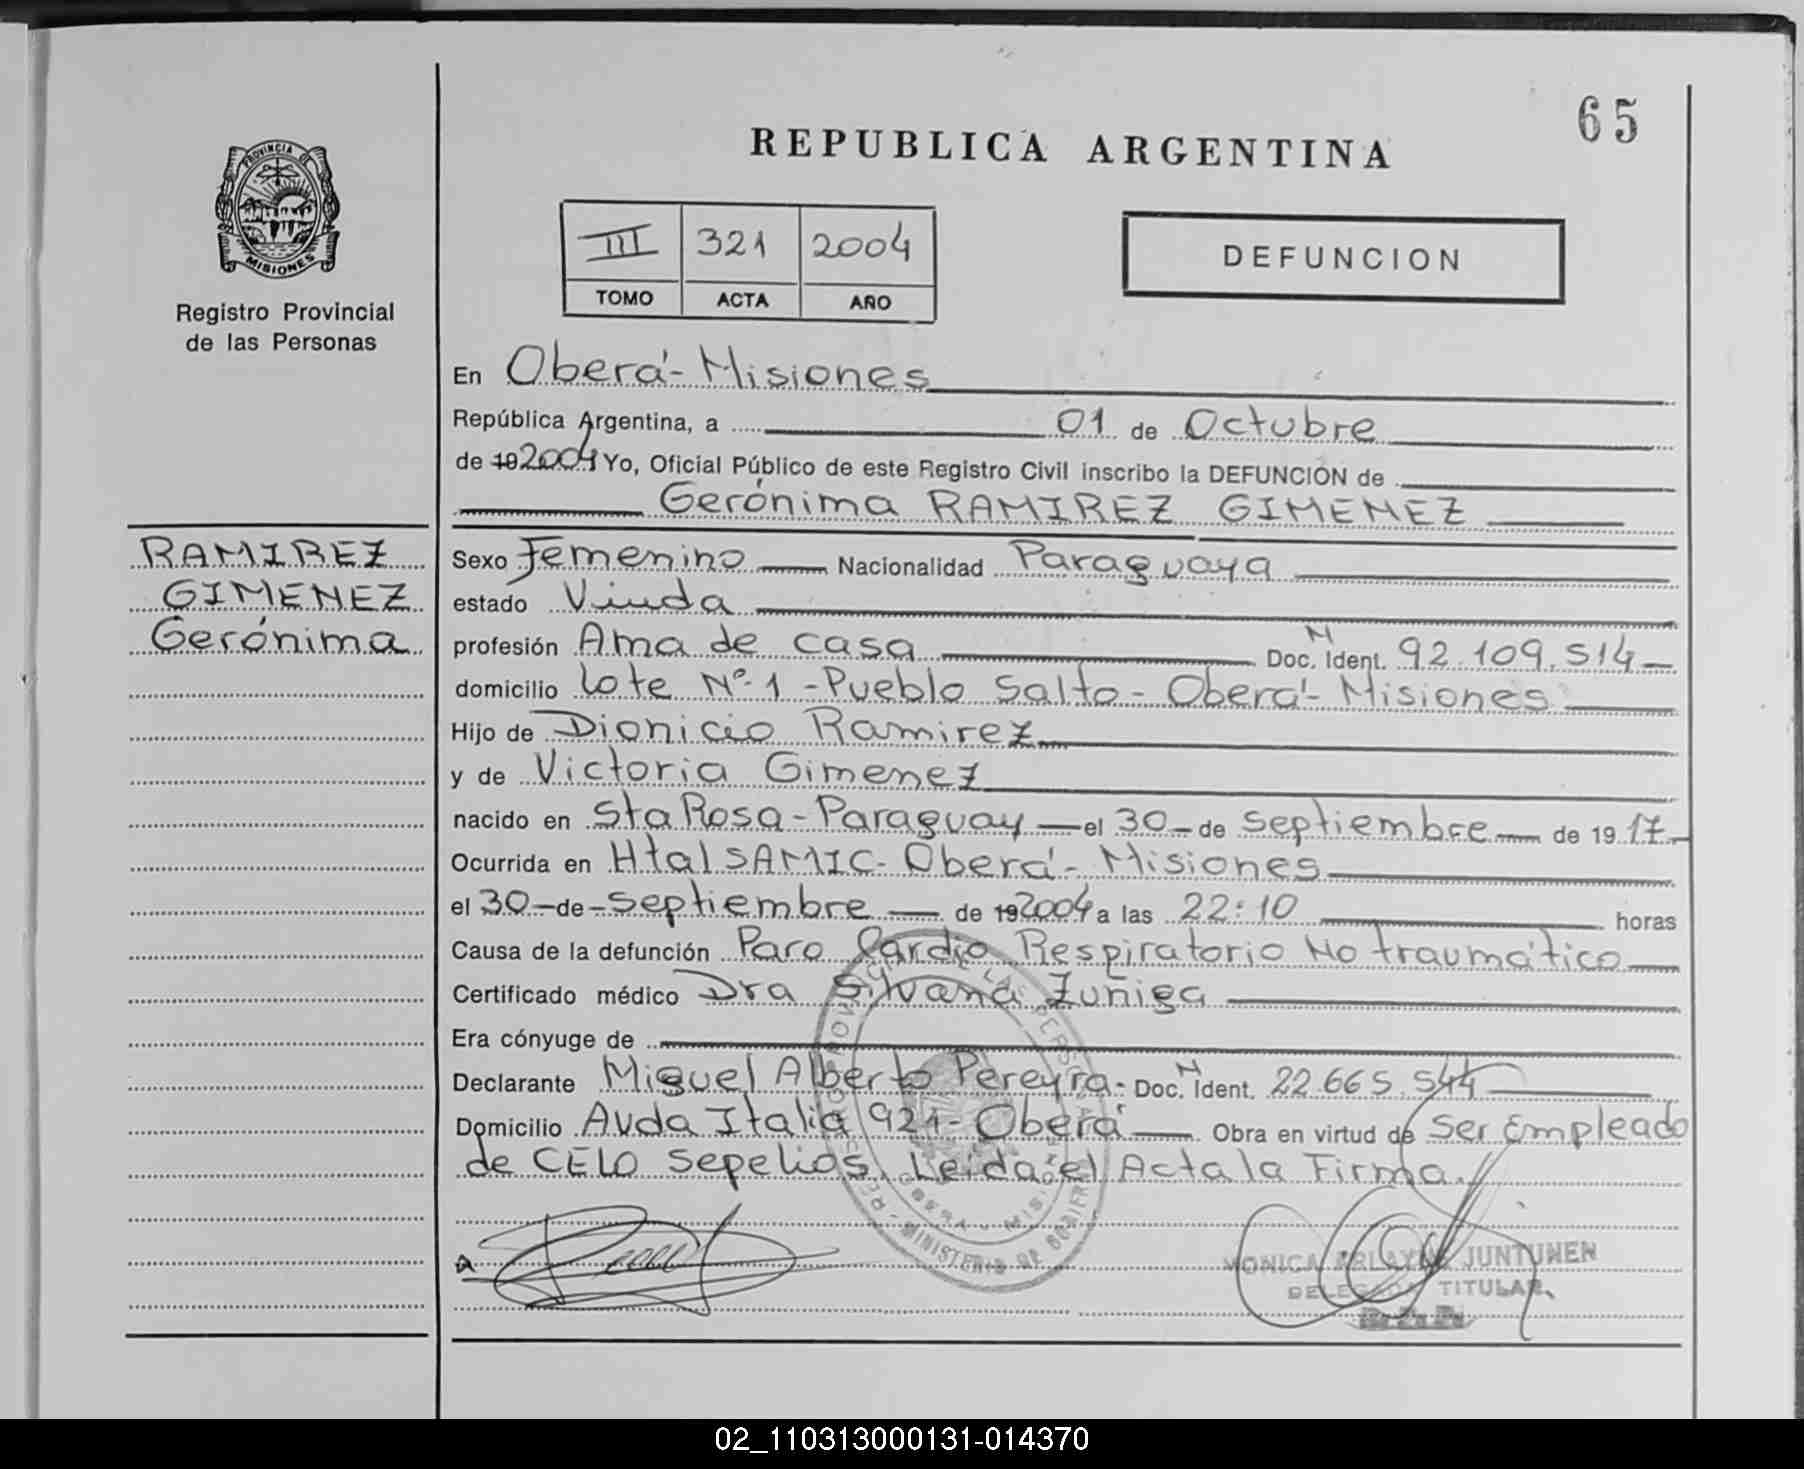 65
REPUBLICA ARGENTINA
PROVINCIA DE
MISIONES
Registro Provincial
de las Personas
III 321 2004
TOMO ACTA AÑO
DEFUNCION
En Oberá - Misiones
República Argentina, a 01 de Octubre
de 19 2004 Yo, Oficial Público de este Registro Civil inscribo la DEFUNCION de
Gerónima RAMIREZ GIMENEZ
RAMIREZ
GIMENEZ
Gerónima
Sexo Femenino Nacionalidad Paraguaya
estado Viuda
profesión Ama de casa Doc. N Ident. 92.109.514
domicilio Lote Nº 1 - Pueblo Salto - Oberá - Misiones
Hijo de Dionicio Ramirez
y de Victoria Gimenez
nacido en Sta Rosa - Paraguay el 30 de Septiembre de 19 17
Ocurrida en Htal SAMIC - Oberá - Misiones
el 30 de Septiembre de 19 2004 a las 22:10 horas
Causa de la defunción Paro Cardio Respiratorio No traumático
Certificado médico Dra Silvana Zuñiga
Era cónyuge de
Declarante Miguel Alberto Pereyra - Doc. N Ident. 22.665.544
Domicilio Avda Italia 921 - Oberá Obra en virtud de Ser Empleado
de CELO Sepelios. Leida el Acta la Firma.
MINISTERIO DE GOBIERNO
OBERA - MISIONES
MONICA ARLAYNE JUNTUNEN
DELEGADA TITULAR
02_110313000131-014370